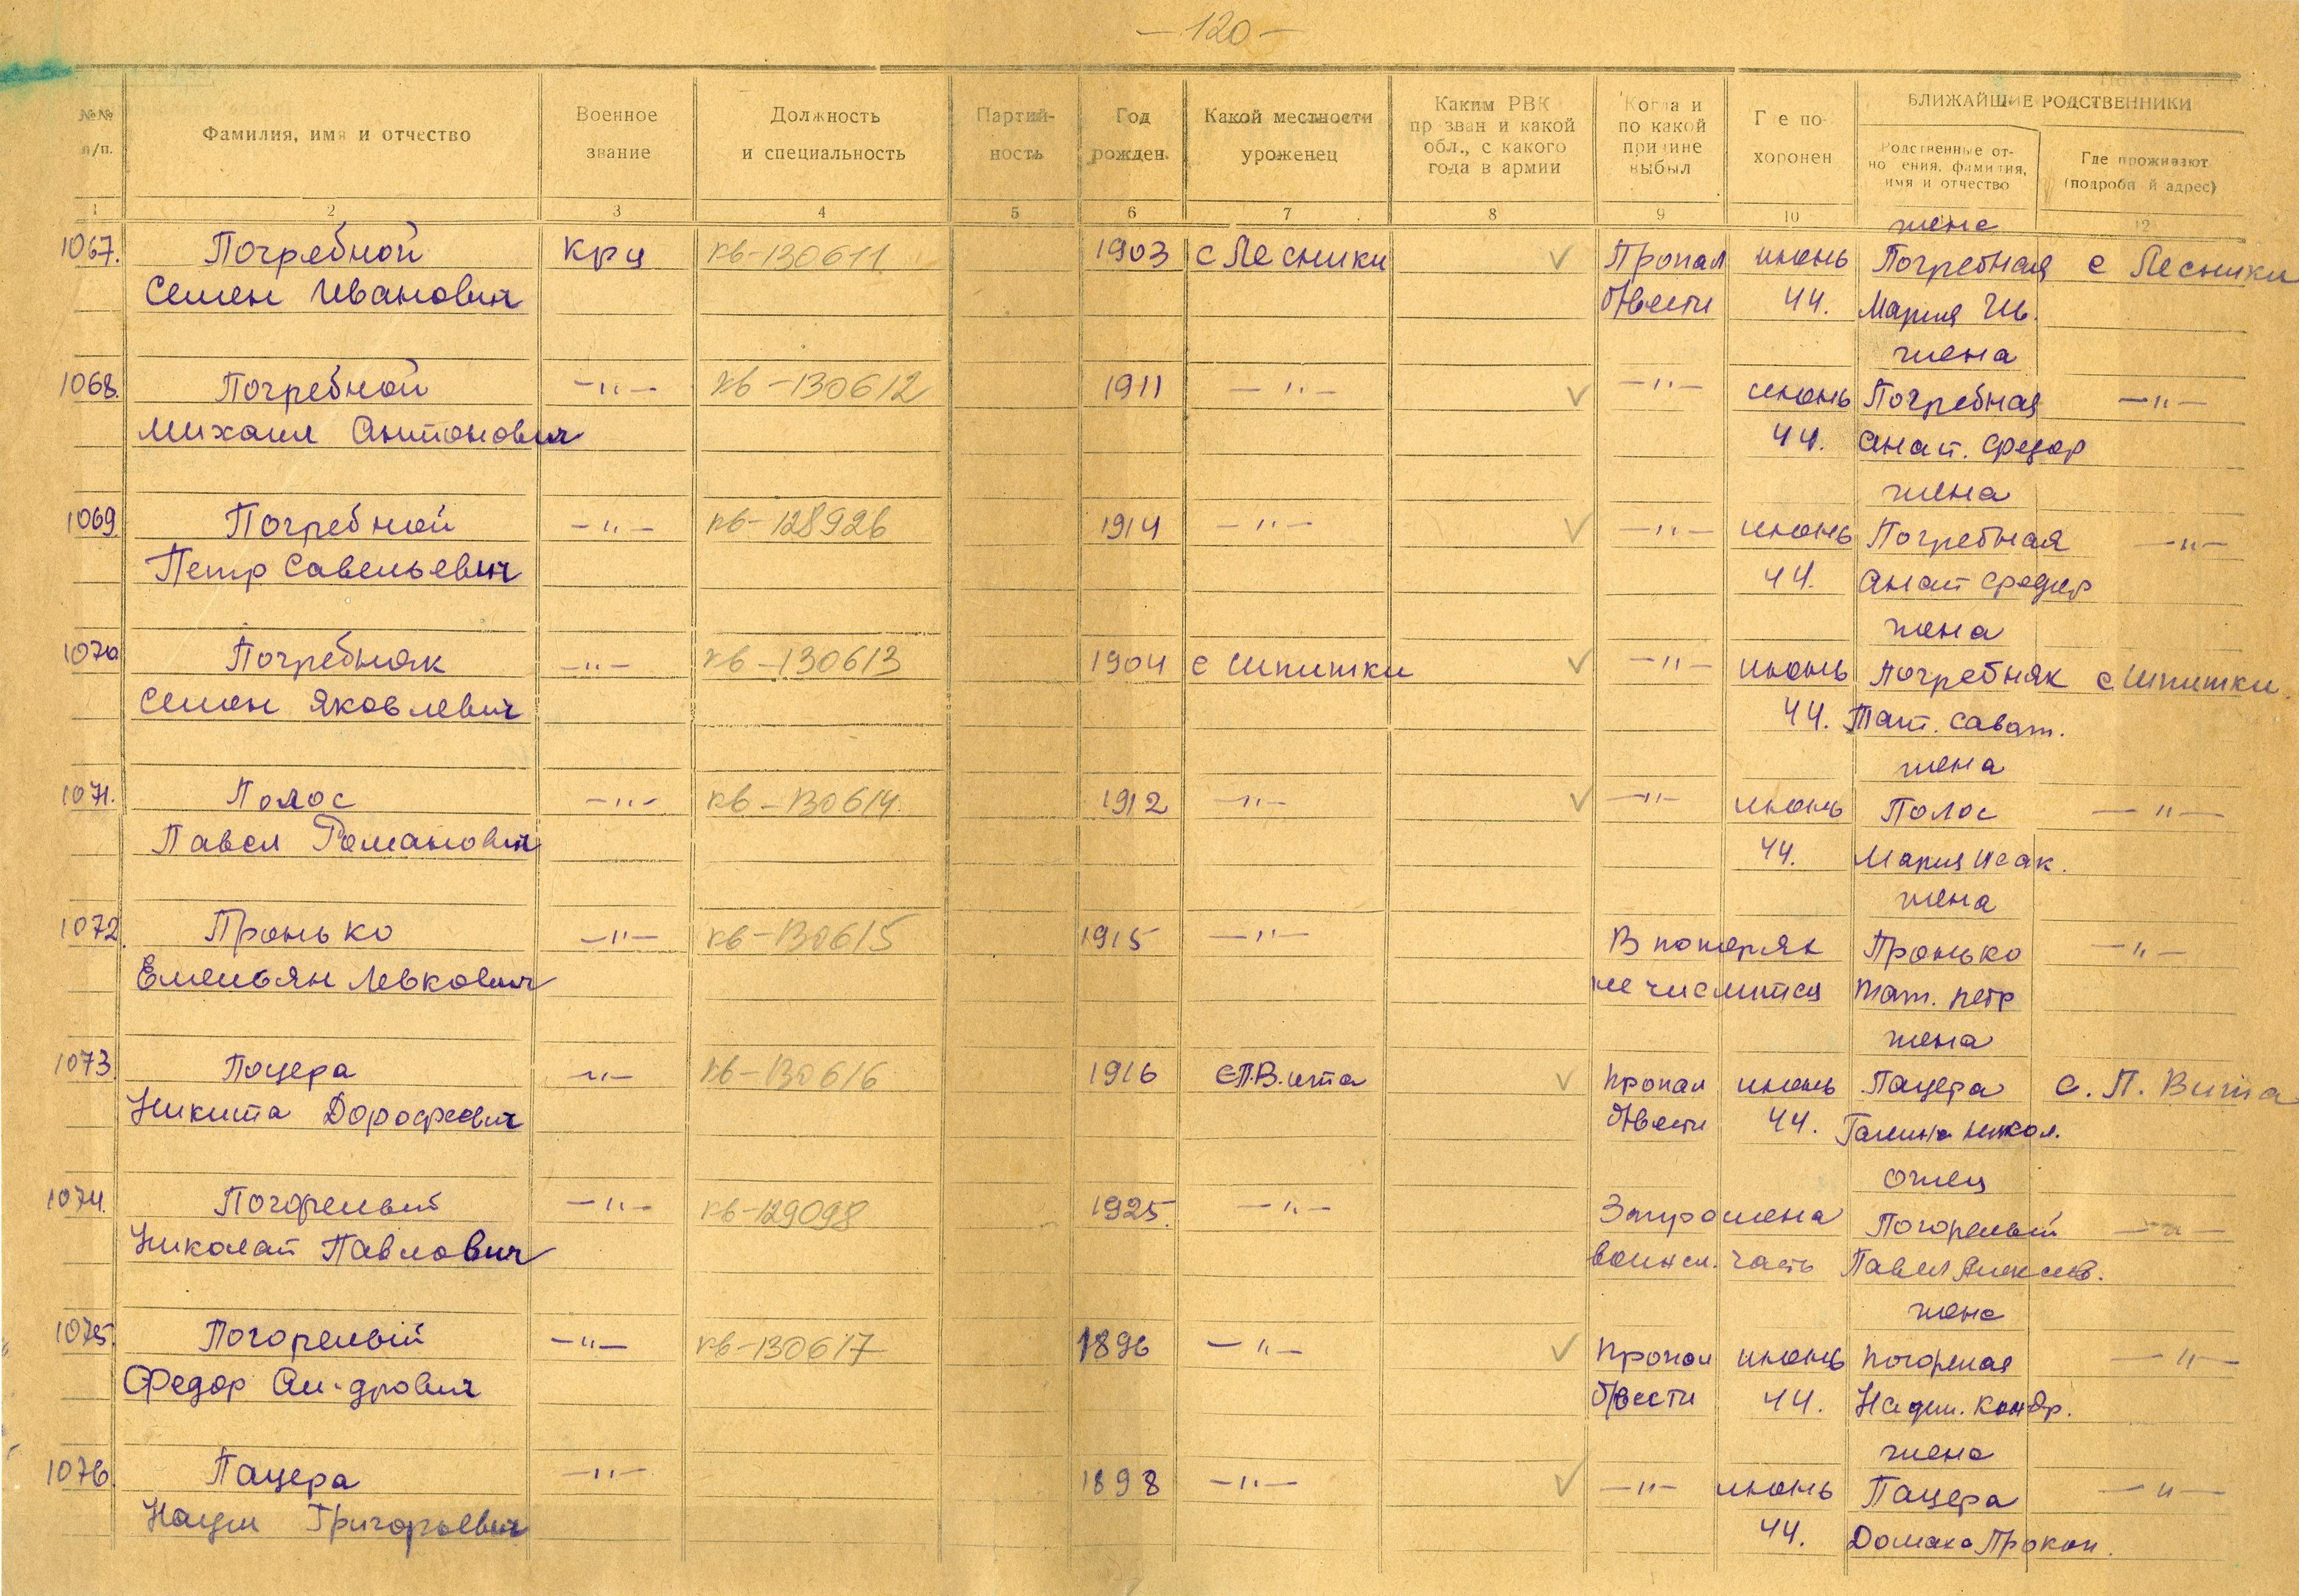 — 120 —
№№ п/п.
Фамилия, имя и отчество
Военное звание
Должность и специальность
Партий-ность
Год рожден.
Какой местности уроженец
Каким РВК призван и какой обл., с какого года в армии
Когда и по какой причине выбыл
Где по-хоронен
БЛИЖАЙШИЕ РОДСТВЕННИКИ
Родственные от-ношения, фамилия, имя и отчество
Где проживают (подробный адрес)
1 2 3 4 5 6 7 8 9 10 12
жена
1067. Погребной Крц кв-130611 1903 с Лесники √ Пропал июнь Погребная с Лесники
Семен Иванович б/вести 44. Мария Ив.
жена
1068. Погребной —"— кв-130612 1911 —"— √ —"— июнь Погребная —"—
Михаил Антонович 44. Анат. Федор
жена
1069. Погребной —"— кв-128926 1914 —"— √ —"— июнь Погребная —"—
Петр Савельевич 44. Анат Федор
жена
1070 Погребняк —"— кв-130613 1904 с Шпитьки √ —"— июнь Погребняк с Шпитьки.
Семен Яковлевич 44. Тат. Сават.
жена
1071. Полос —"— кв-130614. 1912 —"— √ —"— июнь Полос —"—
Павел Романович 44. Мария Исак.
жена
1072. Пронько —"— кв-130615 1915 —"— В потерях Пронько —"—
Емельян Левкович не числится Тат. Петр
жена
1073. Пацера —"— кв-130616 1916 с П.В.ита √ Пропал июнь Пацера с. П. Вита
Никита Дорофеевич б/вести 44. Галина Никол.
отец
1074. Погорелый —"— кв-129098 1925. —"— Запрошена Погорелый —"—
Николай Павлович воинск. часть Павел Алексеев.
жена
1075. Погорелый —"— кв-130617 1896 —"— √ Пропал июнь Погорелая —"—
Федор Ан-дрович б/вести 44. Надеж. Кондр.
жена
1076. Пацера —"— 1898 —"— √ —"— июнь Пацера —"—
Наум Григорьевич 44. Домаха Прокоп.